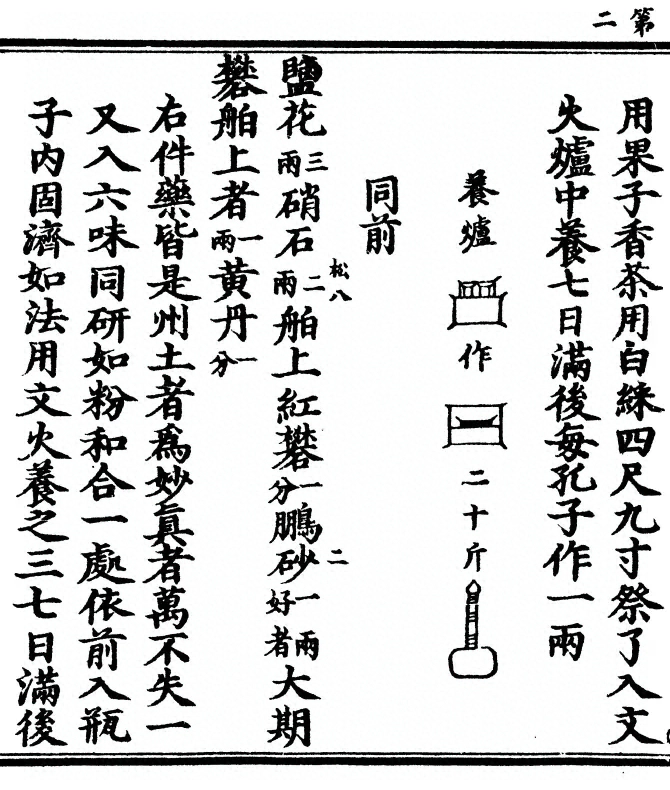 第二
用果子香茶用白綀四尺九寸祭了入文
火爐中養七日滿後每孔子作一兩
養爐 作 二十斤
同前
松八 二
鹽花三兩硝石二兩舶上紅礬一分鵬砂一兩好者大期
礬舶上者一兩黄丹一分
右件藥皆是州土者爲妙眞者萬不失一
又入六味同研如粉和合一處依前入瓶
子內固濟如法用文火養之三七日滿後